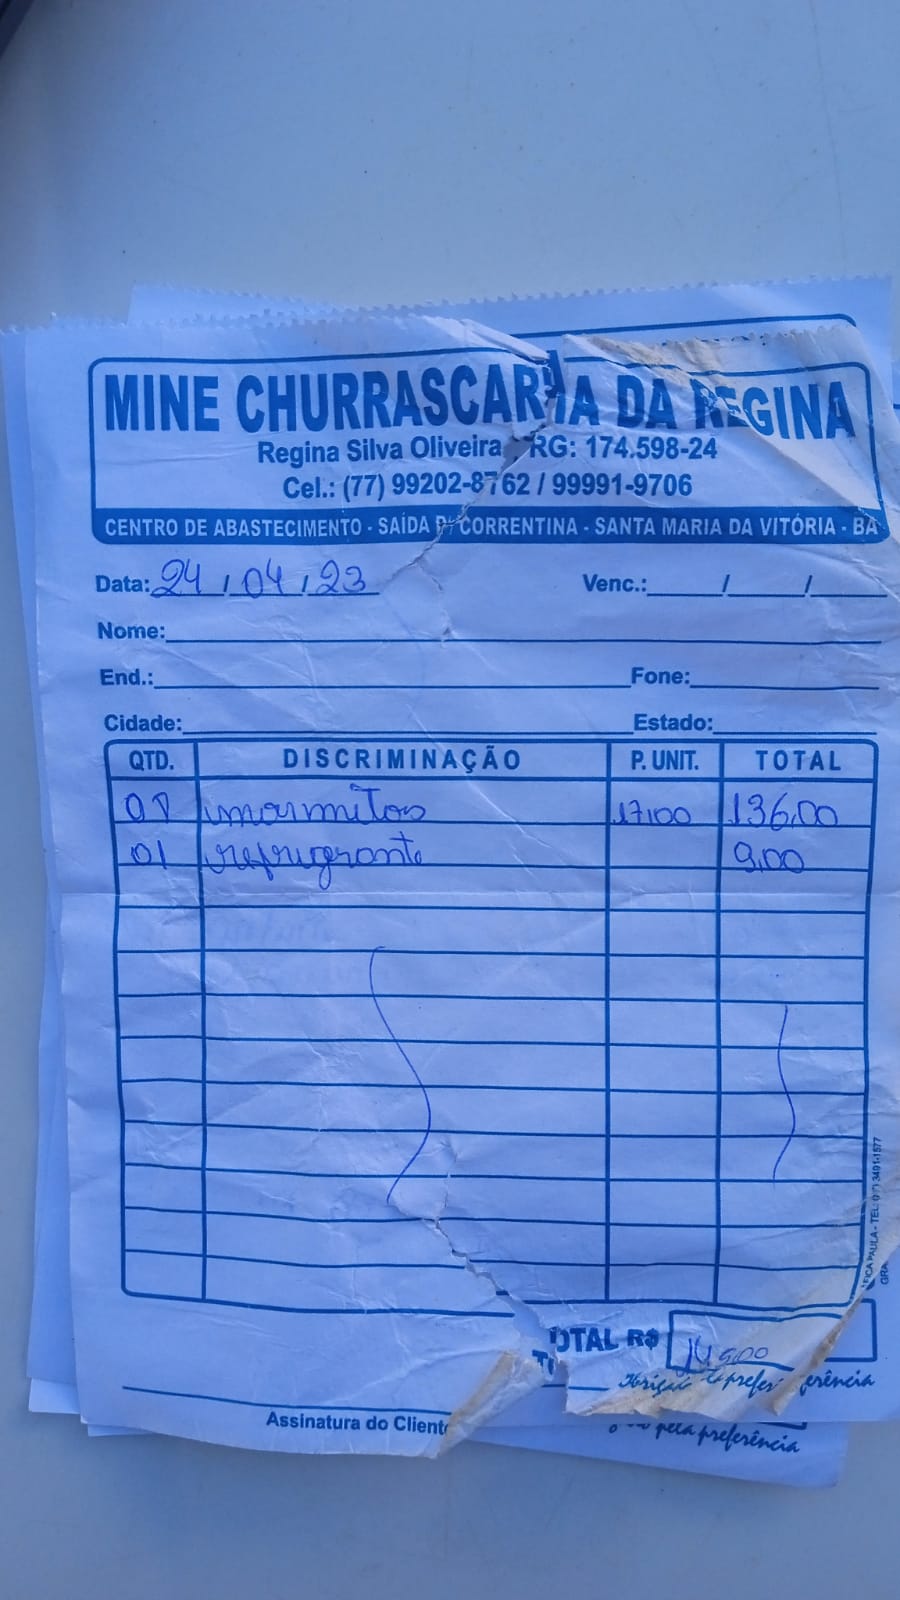 MINE CHURRASCARIA DA REGINA
Regina Silva Oliveira RG: 174.598-24
Cel.: (77) 99202-8762 / 99991-9706
CENTRO DE ABASTECIMENTO - SAÍDA P/ CORRENTINA - SANTA MARIA DA VITÓRIA - BA
Data: 24 / 04 / 23 Venc.: / /
Nome:
End.: Fone:
Cidade: Estado:
QTD. DISCRIMINAÇÃO P. UNIT. TOTAL
08 marmitas 17,00 136,00
01 refrigrante 9,00
OTAL R$ 145,00
Obrigado preferência
Assinatura do Cliente
pela preferência
PAULA - TEL: 3491-1577
GRA